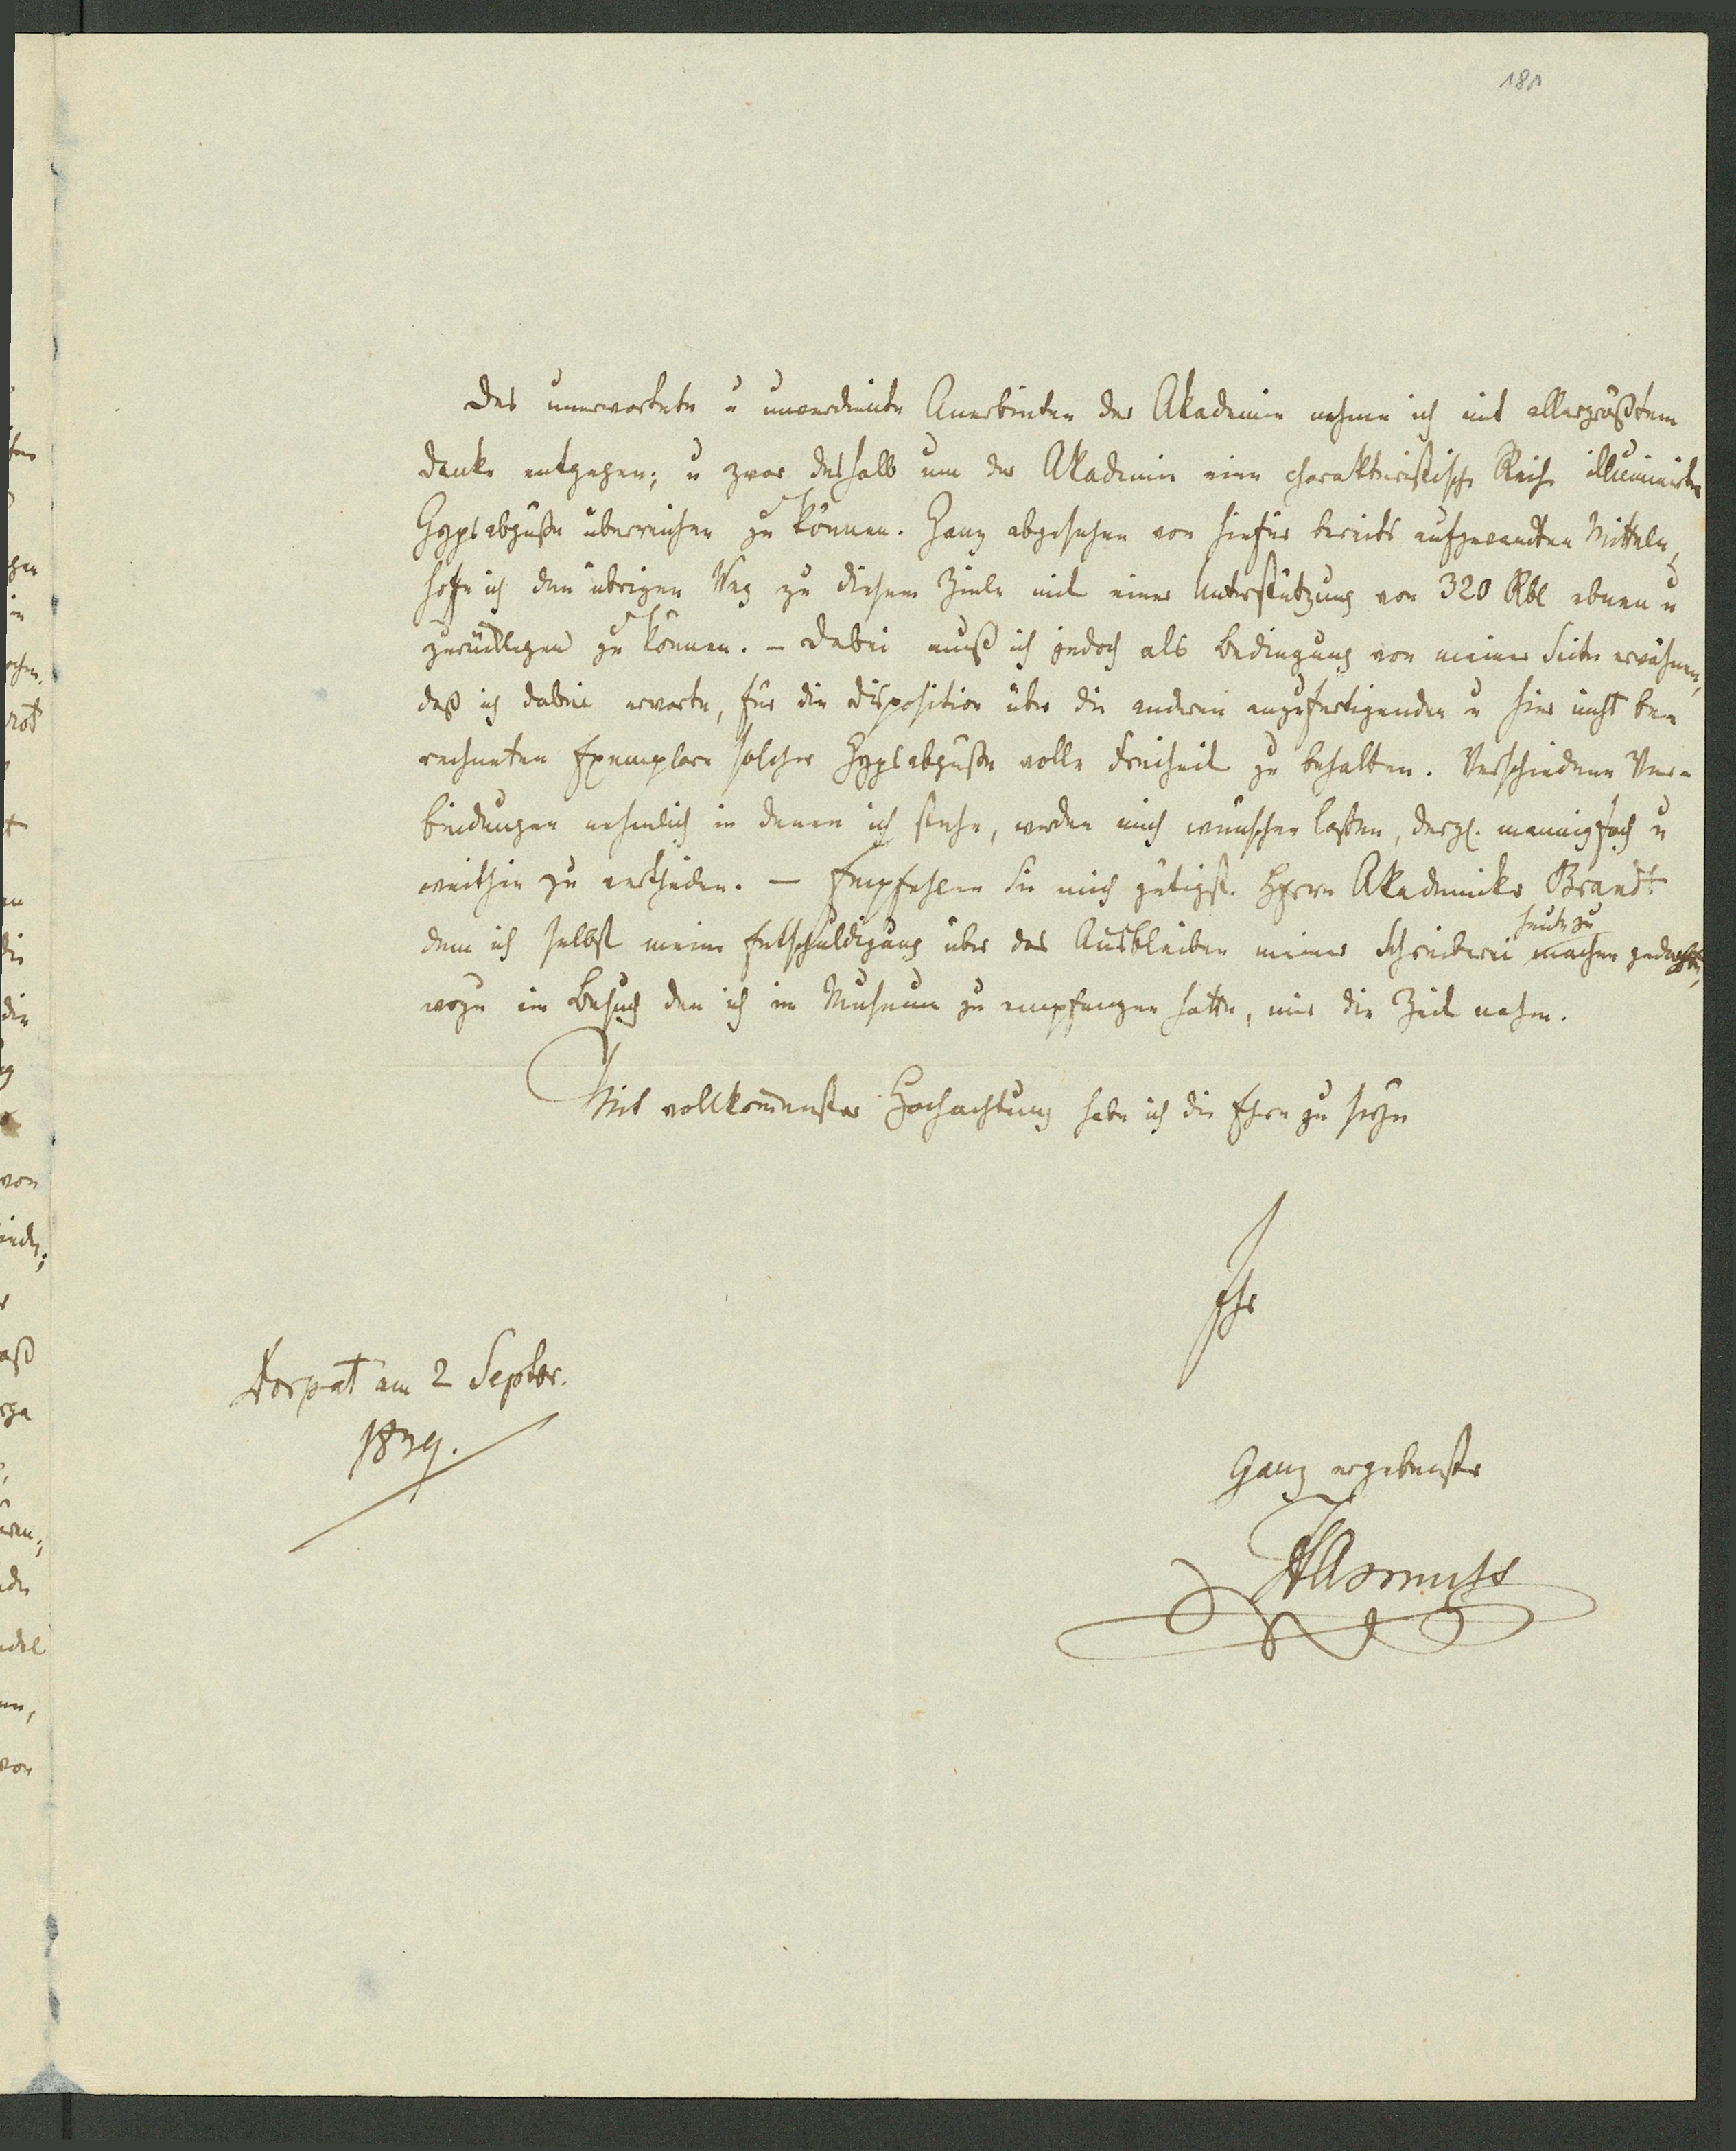 181
Das unerwartete u unverdiente Anerbieten der Akademie nehme ich mit allergrößtem
Danke entgegen; u zwar deshalb um der Akademie eine charakteristische Reihe illuminirter
Gypsabgüße überreichen zu können. Ganz abgesehen von hiefür bereits aufgewandten Mitteln,
hoffe ich den übrigen Weg zu diesem Ziele mit einer Unterstützung von 320 Rbl ebnen u
zurücklegen zu können. – Dabei muß ich jedoch als Bedingung von meiner Seite erwähnen,
daß ich dabei erwarte, für die Disposition über die anderen anzufertigenden u hier nicht be-
rechneten Exemplare solcher Gypsabgüße volle Freiheit zu behalten. Verschiedene Ver-
bindungen nehmlich in denen ich stehe, werden mich wünschen laßen, dergl. mannigfach u
weithin zu vertheilen. – Empfehlen Sie mich gütigst Herrn Akademiker Brandt
heute zu
dem ich selbst meine Entschuldigung über das Ausbleiben meiner Schreiberei machen gedachte,
wozu ein Besuch den ich im Museum zu empfangen hatte, mir die Zeit nahm.
Mit vollkommenster Hochachtung habe ich die Ehre zu seyn
Ihr
Dorpat am 2 Septbr.
1839.
Ganz ergebenster
HAsmuss